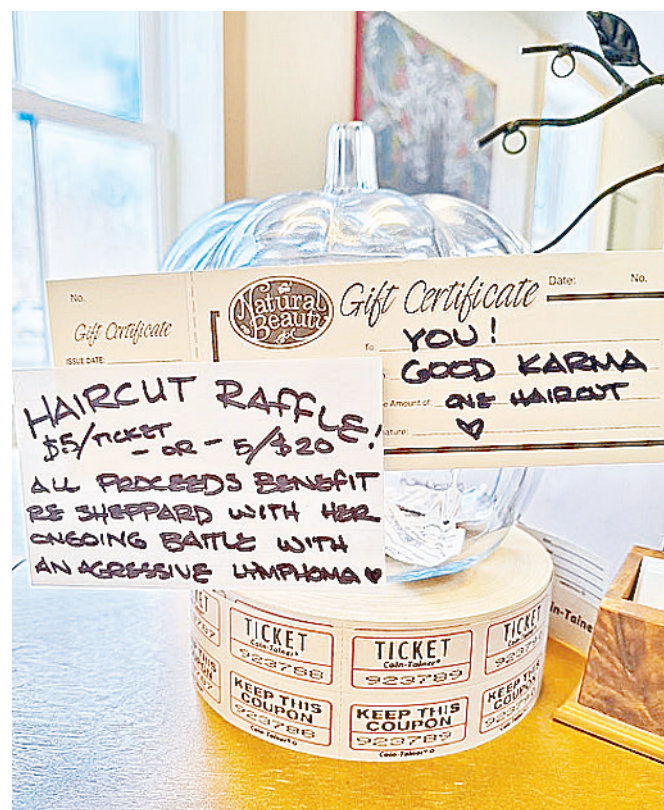 No.
Gift Certificate
ISSUE DATE:
Natural
Beauti
Gift Certificate
Date:
No.
To
YOU!
GOOD KARMA
e Amount of:
ONE HAIRCUT
nature:
♡
HAIRCUT RAFFLE!
$5/TICKET
- OR - 5/$20
ALL PROCEEDS BENEFIT
RE SHEPPARD WITH HER
ONGOING BATTLE WITH
AN AGRESSIVE LYMPHOMA ♥
TICKET
Coin-Tainer
923788
TICKET
Coin-Tainer
923789
TICKET
Coin-Tainer
KEEP THIS
COUPON
923788
Coin-Tainer
KEEP THIS
COUPON
923789
Coin-Tainer
KEEP THIS
COUPON
Coin-Taine